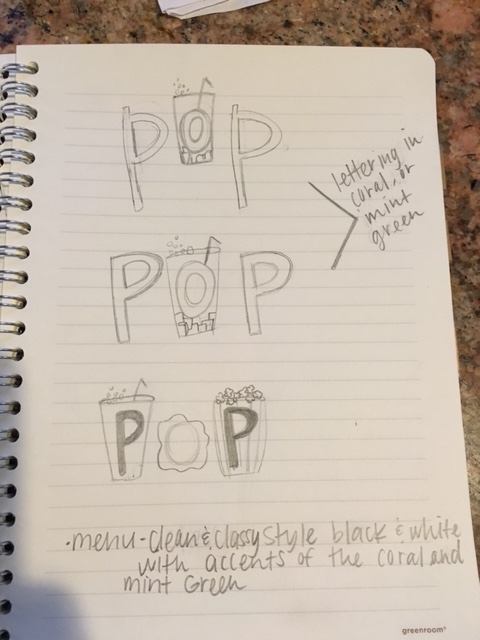 POP
lettering in
coral, or
mint
green
POP
POP
·menu-clean & classy style black & white
with accents of the coral and
mint Green
greenroom®